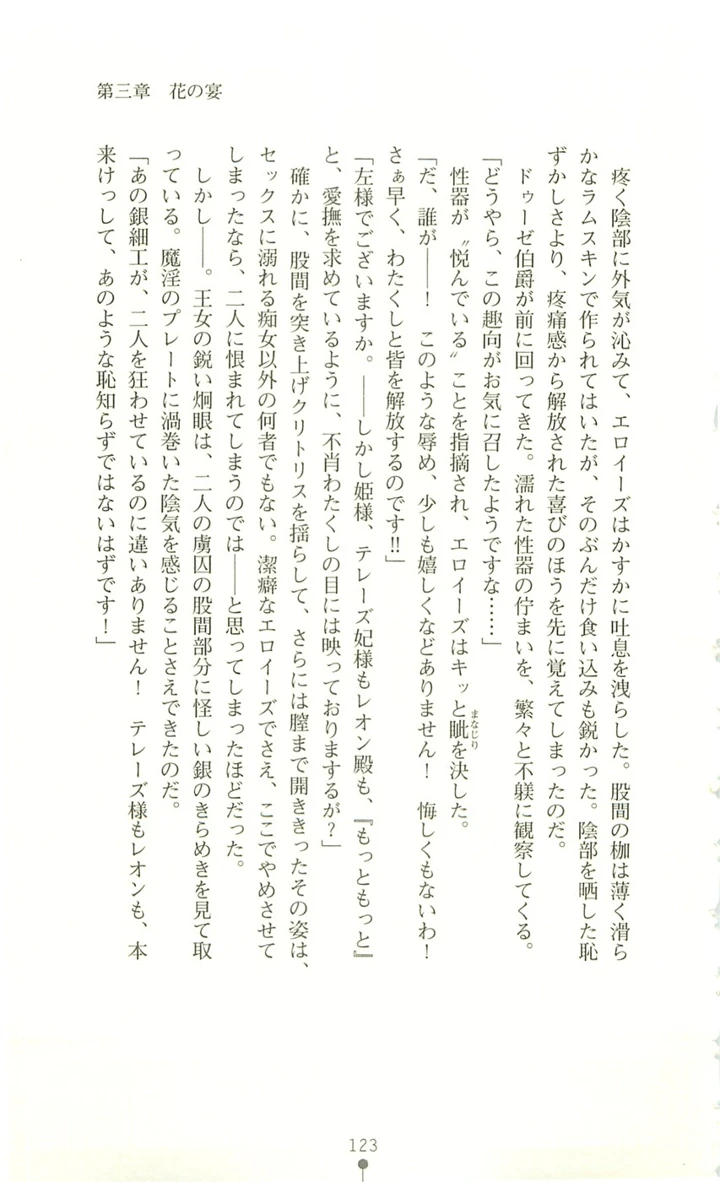 第三章　花の宴
　疼く陰部に外気が沁みて、エロイーズはかすかに吐息を洩らした。股間の枷は薄く滑ら
かなラムスキンで作られてはいたが、そのぶんだけ食い込みも鋭かった。陰部を晒した恥
ずかしさより、疼痛感から解放された喜びのほうを先に覚えてしまったのだ。
　ドゥーゼ伯爵が前に回ってきた。濡れた性器の佇まいを、繁々と不躾に観察してくる。
「どうやら、この趣向がお気に召したようですな……」
　性器が〝悦んでいる〟ことを指摘され、エロイーズはキッと眦を決した。
まなじり
「だ、誰が――！　このような辱め、少しも嬉しくなどありません！　悔しくもないわ！
さぁ早く、わたくしと皆を解放するのです‼」
「左様でございますか。――しかし姫様、テレーズ妃様もレオン殿も、『もっともっと』
と、愛撫を求めているように、不肖わたくしの目には映っておりまするが？」
　確かに、股間を突き上げクリトリスを揺らして、さらには膣まで開ききったその姿は、
セックスに溺れる痴女以外の何者でもない。潔癖なエロイーズでさえ、ここでやめさせて
しまったなら、二人に恨まれてしまうのでは――と思ってしまったほどだった。
　しかし――。王女の鋭い炯眼は、二人の虜囚の股間部分に怪しい銀のきらめきを見て取
っている。魔淫のプレートに渦巻いた陰気を感じることさえできたのだ。
「あの銀細工が、二人を狂わせているのに違いありません！　テレーズ様もレオンも、本
来けっして、あのような恥知らずではないはずです！」
123